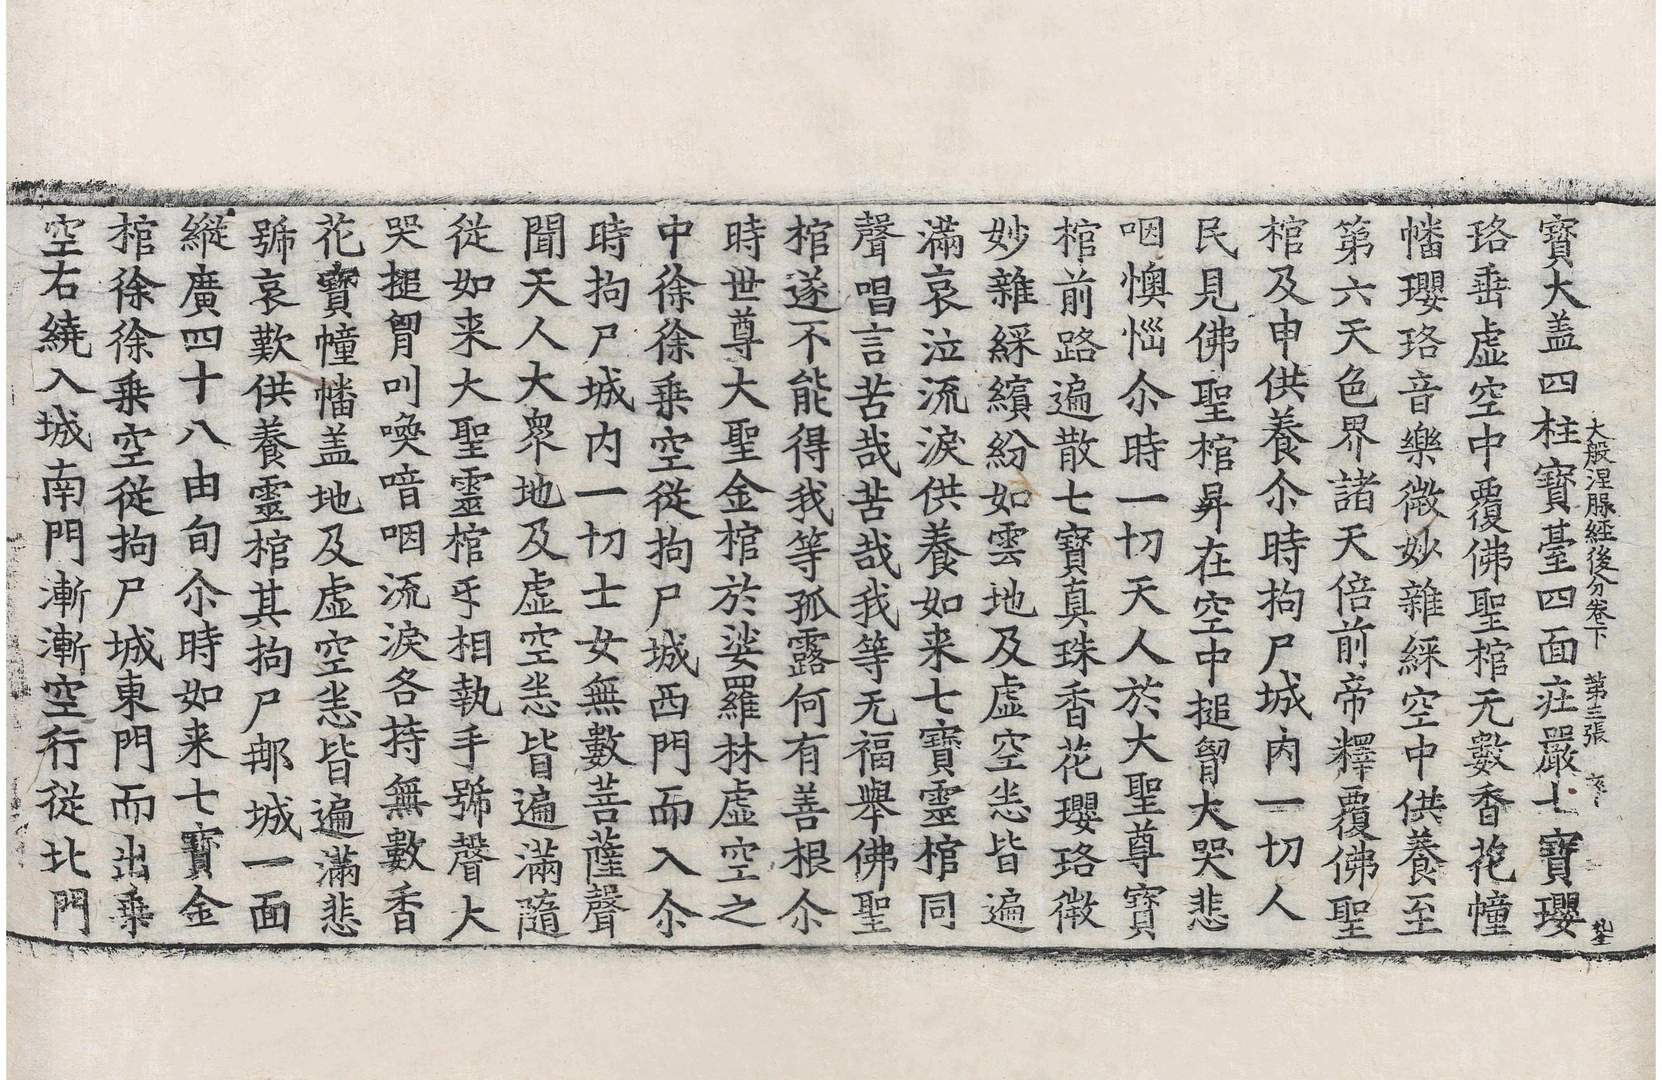 大般涅槃經後分卷下　第三張
寳大盖四柱寳臺四面莊嚴七寳瓔
珞垂虛空中覆佛聖棺无數香花幢
幡瓔珞音樂微妙雜綵空中供養至
第六天色界諸天倍前帝釋覆佛聖
棺及申供養尒時拘尸城內一切人
民見佛聖棺昇在空中搥胷大哭悲
咽懊惱尒時一切天人於大聖尊寳
棺前路遍散七寳真珠香花瓔珞微
妙雜綵繽紛如雲地及虛空悉皆遍
滿哀泣流淚供養如来七寳靈棺同
聲唱言苦哉苦哉我等无福舉佛聖
棺遂不能得我等孤露何有善根尒
時世尊大聖金棺於娑羅林虛空之
中徐徐乗空從拘尸城西門而入尒
時拘尸城內一切士女無數菩薩聲
聞天人大衆地及虛空悉皆遍滿隨
從如来大聖靈棺㸦相執手號聲大
哭搥胷叫喚喑咽流淚各持無數香
花寳幢幡盖地及虛空悉皆遍滿悲
號哀歎供養靈棺其拘尸那城一面
縱廣四十八由旬尒時如来七寳金
棺徐徐乗空從拘尸城東門而出乗
空右繞入城南門漸漸空行從北門